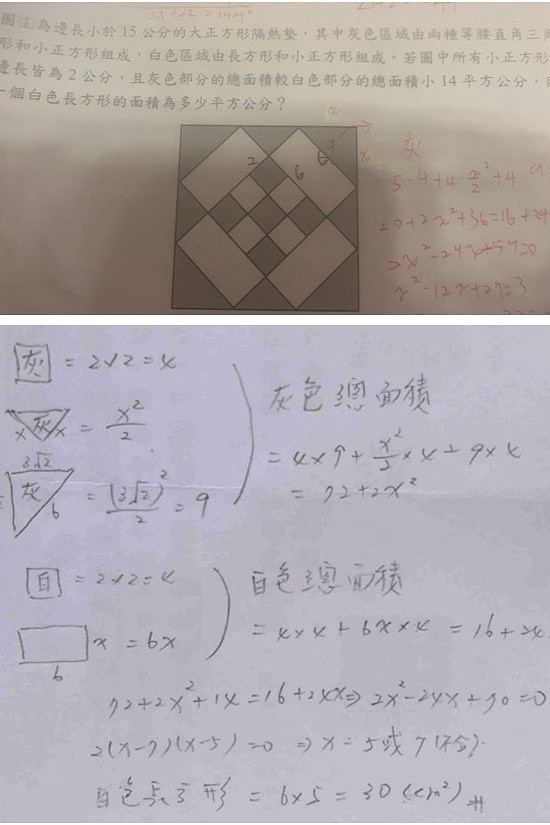 圖(註)為邊長小於15公分的大正方形隔熱墊,其中灰色區域由兩種等腰直角三角
形和小正方形組成,白色區域由長方形和小正方形組成。若圖中所有小正方形
邊長皆為2公分,且灰色部分的總面積較白色部分的總面積小14平方公分,
一個白色長方形的面積為多少平方公分?
x
2 6 6 x
灰
2x²-24x+54=0
灰 = 2×2=4
x 灰 x = x²/2
3√2
灰 6 = (3√2)²/2 = 9
灰色總面積
= 4×9+x²/2×4+9×4
= 72+2x²
白 = 2×2=4
x = 6x
6
白色總面積
= 4×4+6x×4 = 16+24
72+2x²+14=16+24x⇒2x²-24x+70=0
2(x-7)(x-5)=0 ⇒ x=5或7(不合)
白色長方形 = 6×5 = 30(cm²)